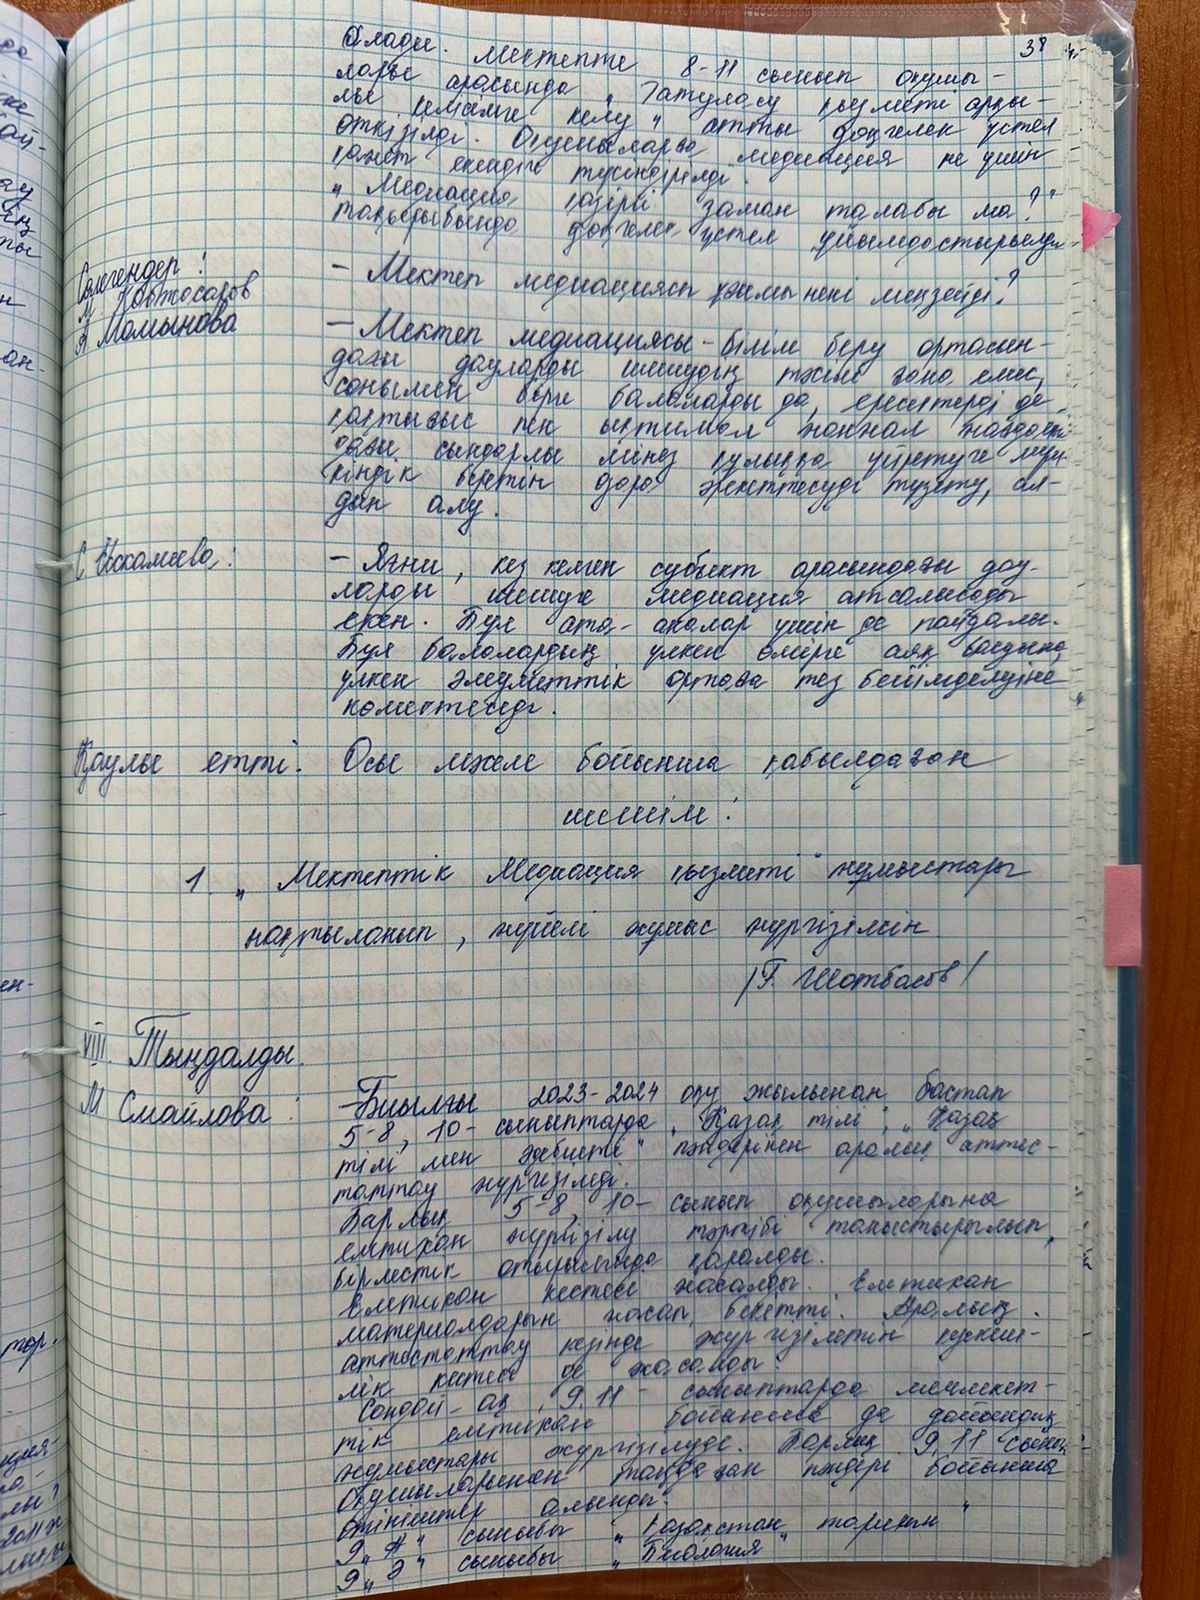 38
алады. Мектепте 8-11 сынып оқушы-
лары арасында „Татуласу қызметі арқы-
лы келісімге келу" атты дөңгелек үстел
өткізілді. Оқушыларға медиация не үшін
қажет екендігі түсіндірілді.
„Медиация қазіргі заман талабы ма?"
тақырыбында дөңгелек үстел ұйымдастырылды
Сөйлегендер:
– Мектеп медиациясы ұғымы нені меңзейді?
А Момынова
– Мектеп медиациясы – білім беру ортасын-
дағы дауларды шешудің тәсілі ғана емес,
сонымен бірге балаларды да, ересектерді де
қақтығыс пен ықтимал жанжал жағдай
дағы сындарлы мінез құлыққа үйретуге мүм
кіндік беретін өзара әрекеттесуді түзету, ал-
дын алу.
С. Искакиева:
– Яғни, кез келген субъект арасындағы дау-
ларды шешуге медиация атсалысады
екен. Бұл ата-аналар үшін де пайдалы.
Бұл балалардың үлкен өмірге аяқ басқанда
үлкен әлеуметтік ортаға тез бейімделуіне
көмектеседі.
Қаулы етті. Осы мәселе бойынша қабылдаған
шешім:
1. „Мектептік Медиация қызметі" жұмыстары
нақтыланып, жүйелі жұмыс жүргізілсін
/Г. Шотбасов/
VIII. Тыңдалды.
М Смайлова:
– Биылғы 2023-2024 оқу жылынан бастап
5-8, 10- сыныптарда „Қазақ тілі", „Қазақ
тілі мен әдебиеті" пәндерінен аралық аттес-
таттау жүргізіледі.
Барлық 5-8, 10- сынып оқушыларына
емтихан жүргізілу тәртібі таныстырылып,
бірлестік отырысында қаралды.
Емтихан кестесі жасалды. Емтихан
материалдарын жасап, бекітті. Аралық
аттестаттау кезінде жүргізілетін кезекші-
лік кестесі де жасалды
Сондай-ақ, 9.11- сыныптарда мемлекет-
тік емтихан бойынша да дайындық
жұмыстары жүргізілуде. Барлық 9, 11 сынып
оқушыларынан таңдаған пәндері бойынша
өтініштер алынды.
9 „А" сыныбы „Қазақстан тарихы"
9 „Ә" сыныбы „Биология"